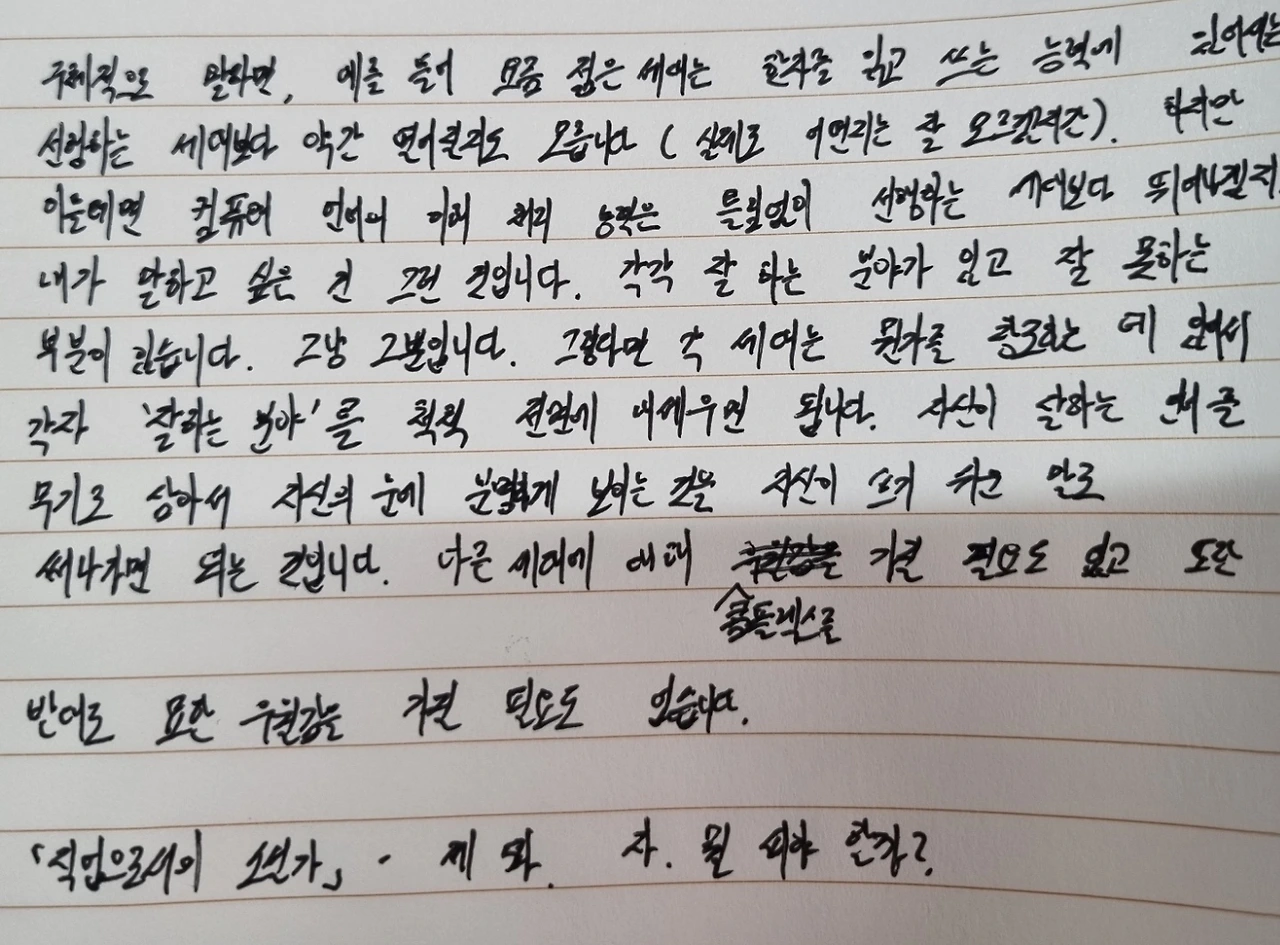 구체적으로 말하면, 예를 들어 요즘 젊은 세대는 한자를 읽고 쓰는 능력에 있어서는
선행하는 세대보다 약간 떨어질지도 모릅니다 ( 실제로 어떤지는 잘 모르겠지만 ). 하지만
이를테면 컴퓨터 언어의 이해 처리 능력은 틀림없이 선행하는 세대보다 뛰어나겠지.
내가 말하고 싶은 건 그런 것입니다. 각각 잘 하는 분야가 있고 잘 못하는
부분이 있습니다. 그냥 그뿐입니다. 그렇다면 각 세대는 뭔가를 창조하는 데 있어서
각자 '잘하는 분야'를 척척 전면에 내세우면 됩니다. 자신이 잘하는 언어를
무기로 삼아서 자신의 눈에 분명하게 보이는 것을 자신이 쓰기 쉬운 말로
써나가면 되는 것입니다. 다른 세대에 대해 콤플렉스를 가질 필요도 없고 또한
반대로 묘한 우월감을 가질 필요도 없습니다.
「직업으로서의 소설가」 - 제 5화. 자. 뭘 써야 할까?